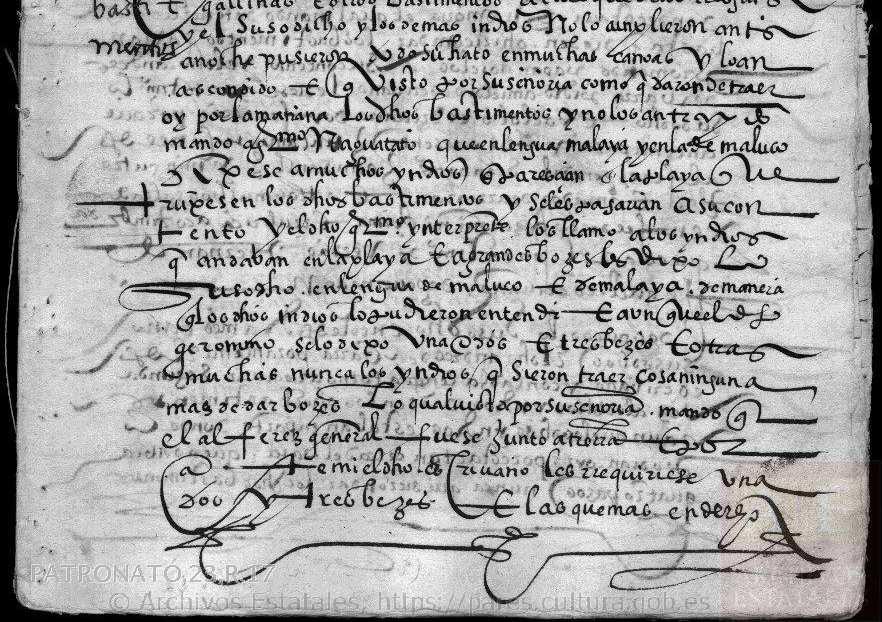 basti gallinas
y el suso dicho y los demas indios no lo cunplieron antes
mentos
anoche pusieron su hato en muchas canoas y loan
ascondido E visto por su señoria como q daron de traer
oy por la mañana los dhos bastimentos y no los an traydo
mando a grmo naguatato que en lengua malaya y en la de maluco
dixese a muchos yndios q paresçian la playa que
truxesen los dhos bastimentos y se les pagarian a su con
tento y el dho grmo ynterprete los llamo a los yndios
q andaban en la playa E a grandes bozes les dixo Lo
suso dho en lengua de maluco E de malaya . de manera
q los dhos indios lo pudieron entender E aunque el dho
geronimo se lo dixo una E dos E tres bezes E otras
muchas nunca los yndios q sieron traer cosa ninguna
mas de dar bozes Lo qual visto por su señoria . mando q
el alferez general fuese junto a tierra E por
ante mi el dho escrivano les rrequiriese una
dos y tres bezes E las que mas en derecho
PATRONATO,23,R.17
© Archivos Estatales, https://pares.cultura.gob.es